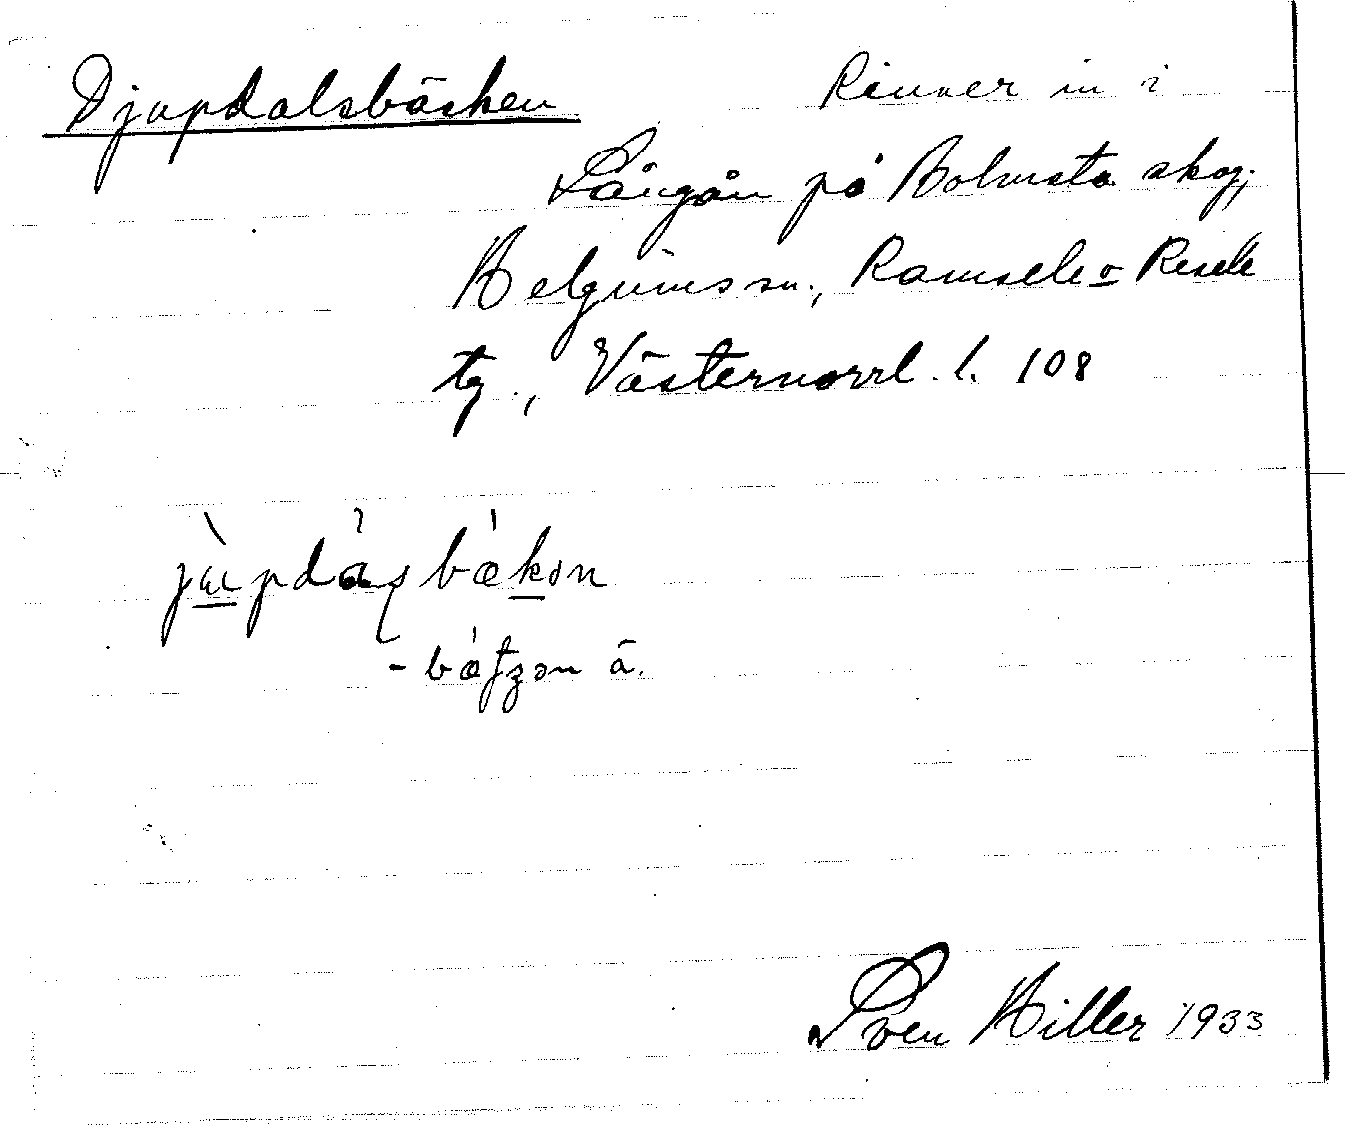 Djupdalsbäcken Rinner in i
Långån på Bolmsta skog;
Helgums sn., Ramsele o Resele
tg., Västernorrl. l. 108
- bæ̀tʒən ä.
Sven Hiller 1933